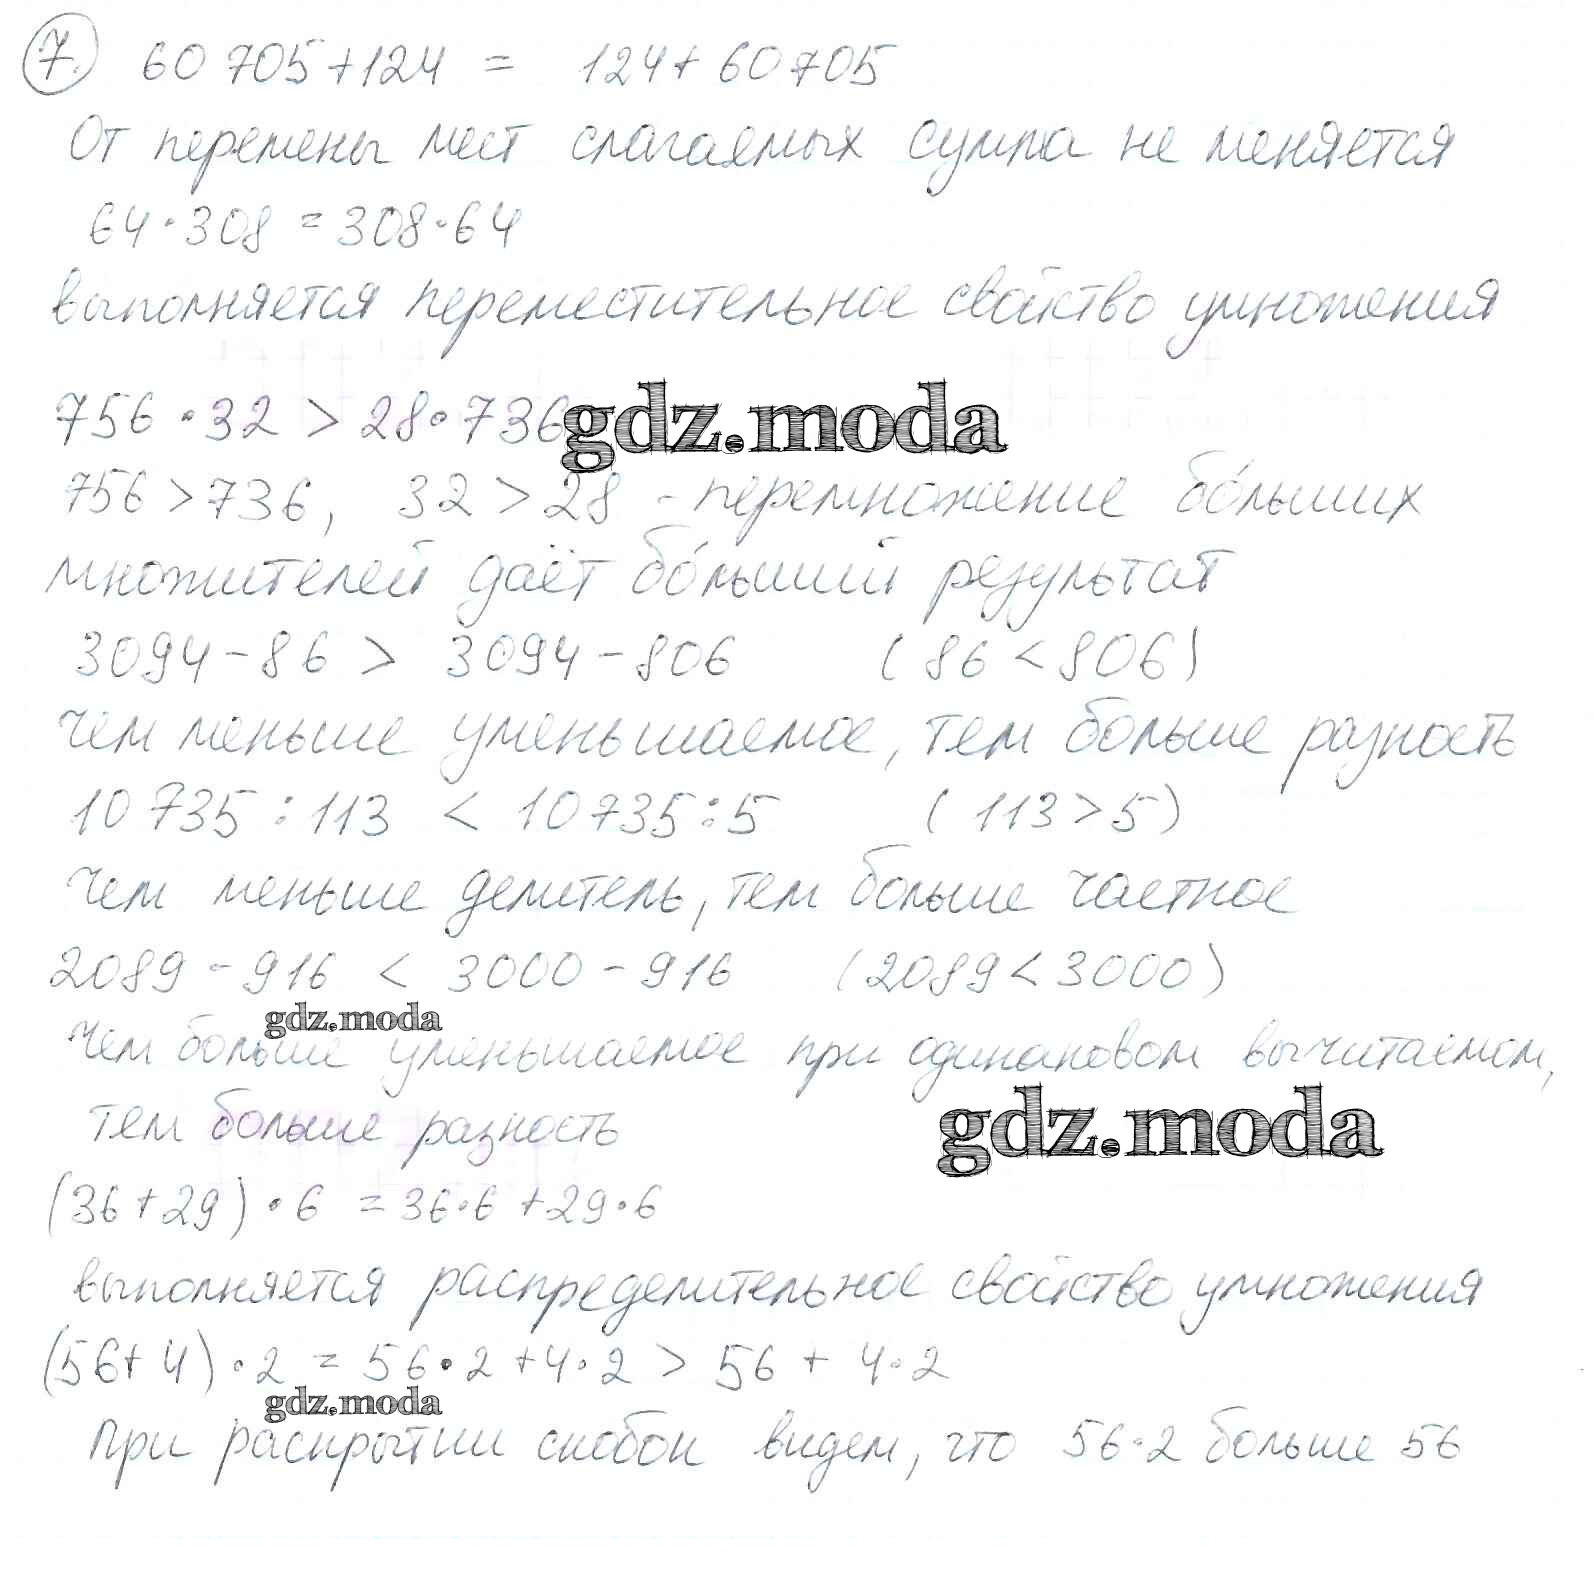 7. 60 705 + 124 = 124 + 60 705
От перемены мест слагаемых сумма не меняется
64 · 308 = 308 · 64
выполняется переместительное свойство умножения
756 · 32 > 28 · 736 gdz.moda
756 > 736, 32 > 28 - перемножение бо́льших
множителей даёт бо́льший результат
3094 - 86 > 3094 - 806 (86 < 806)
чем меньше уменьшаемое, тем больше разность
10 735 : 113 < 10 735 : 5 (113 > 5)
Чем меньше делитель, тем больше частное
2089 - 916 < 3000 - 916 (2089 < 3000)
gdz.moda
Чем больше уменьшаемое при одинаковом вычитаемом,
тем больше разность
gdz.moda
(36 + 29) · 6 = 36 · 6 + 29 · 6
выполняется распределительное свойство умножения
(56 + 4) · 2 = 56 · 2 + 4 · 2 > 56 + 4 · 2
gdz.moda
При раскрытии скобок видем, что 56 · 2 больше 56